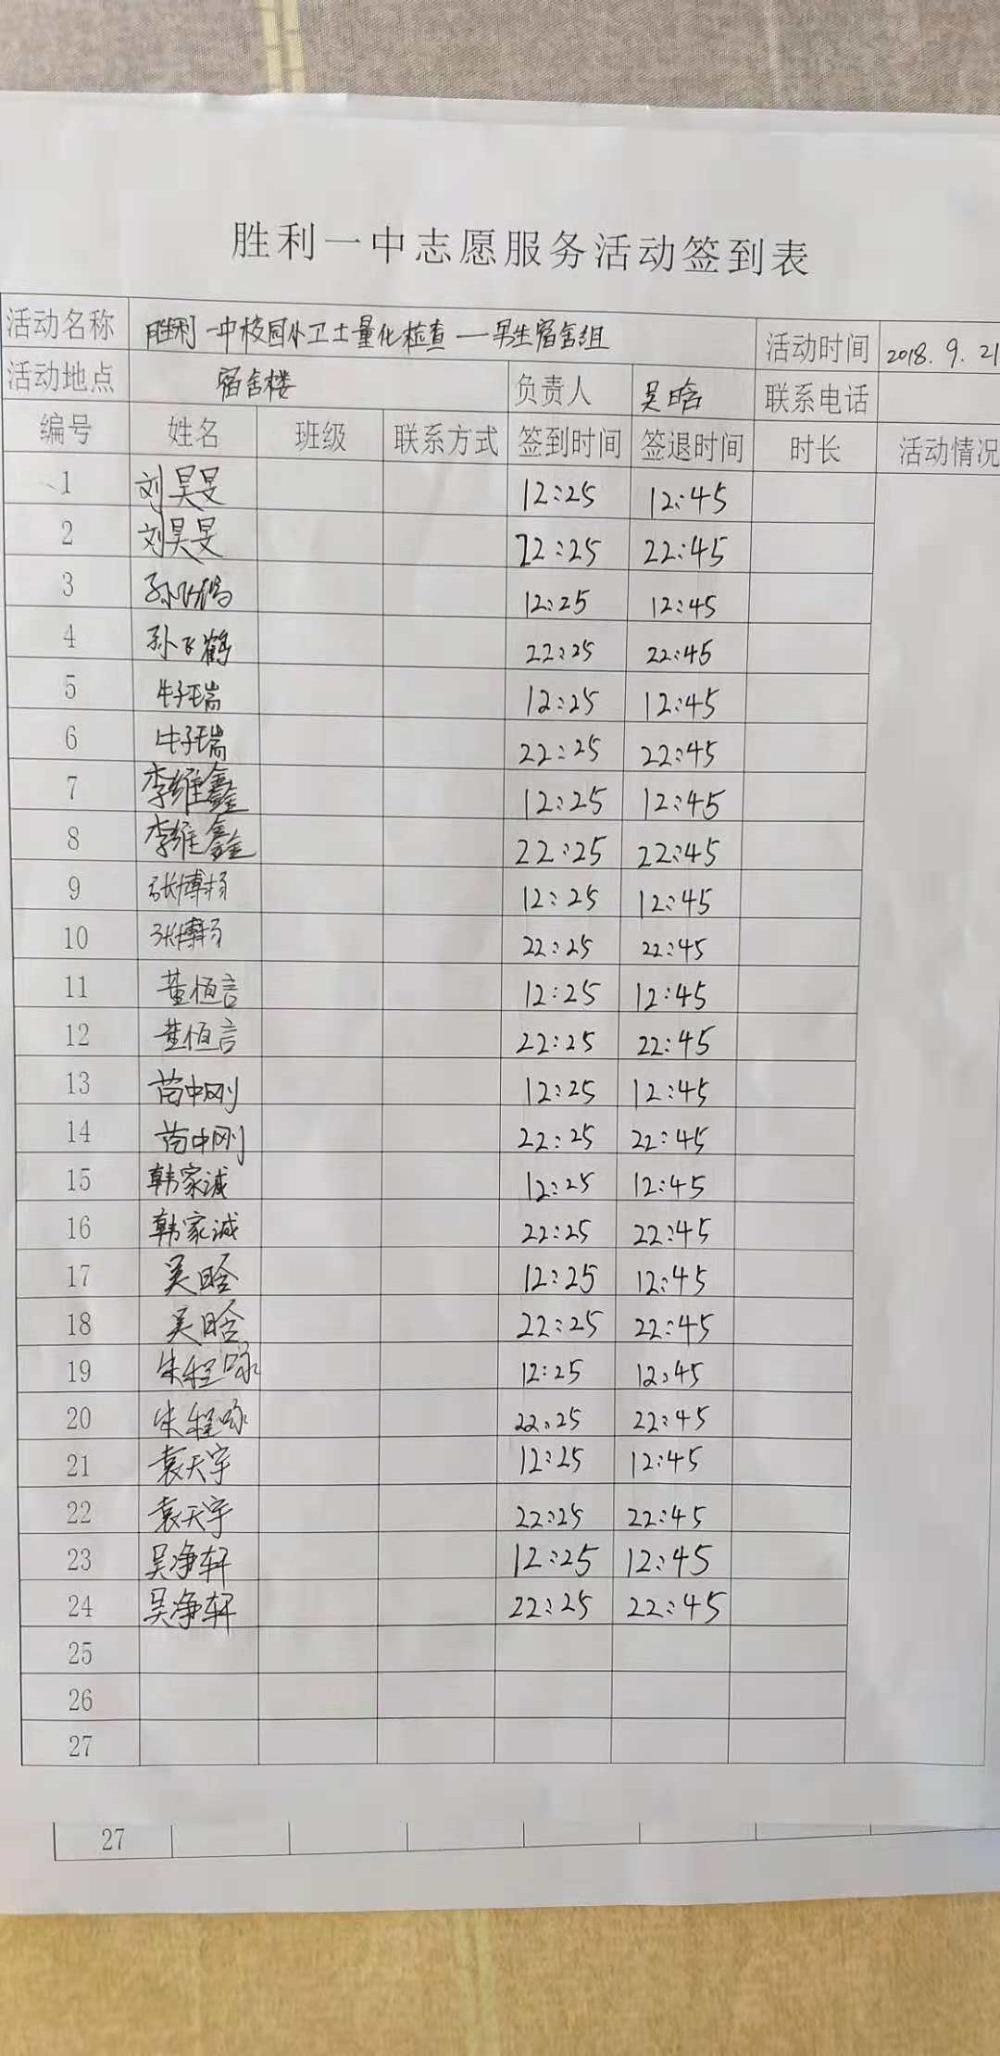 胜利一中志愿服务活动签到表
活动名称 胜利一中校园小卫士量化检查—男生宿舍组 活动时间 2018.9.21
活动地点 宿舍楼 负责人 吴晗 联系电话
编号 姓名 班级 联系方式 签到时间 签退时间 时长 活动情况
1 刘昊旻 12:25 12:45
2 刘昊旻 22:25 22:45
3 孙飞鹤 12:25 12:45
4 孙飞鹤 22:25 22:45
5 牛子瑞 12:25 12:45
6 牛子瑞 22:25 22:45
7 李维鑫 12:25 12:45
8 李维鑫 22:25 22:45
9 张博扬 12:25 12:45
10 张博扬 22:25 22:45
11 董恒言 12:25 12:45
12 董恒言 22:25 22:45
13 苗中刚 12:25 12:45
14 苗中刚 22:25 22:45
15 韩家诚 12:25 12:45
16 韩家诚 22:25 22:45
17 吴晗 12:25 12:45
18 吴晗 22:25 22:45
19 朱程咏 12:25 12:45
20 朱程咏 22:25 22:45
21 袁天宇 12:25 12:45
22 袁天宇 22:25 22:45
23 吴净轩 12:25 12:45
24 吴净轩 22:25 22:45
25
26
27
27